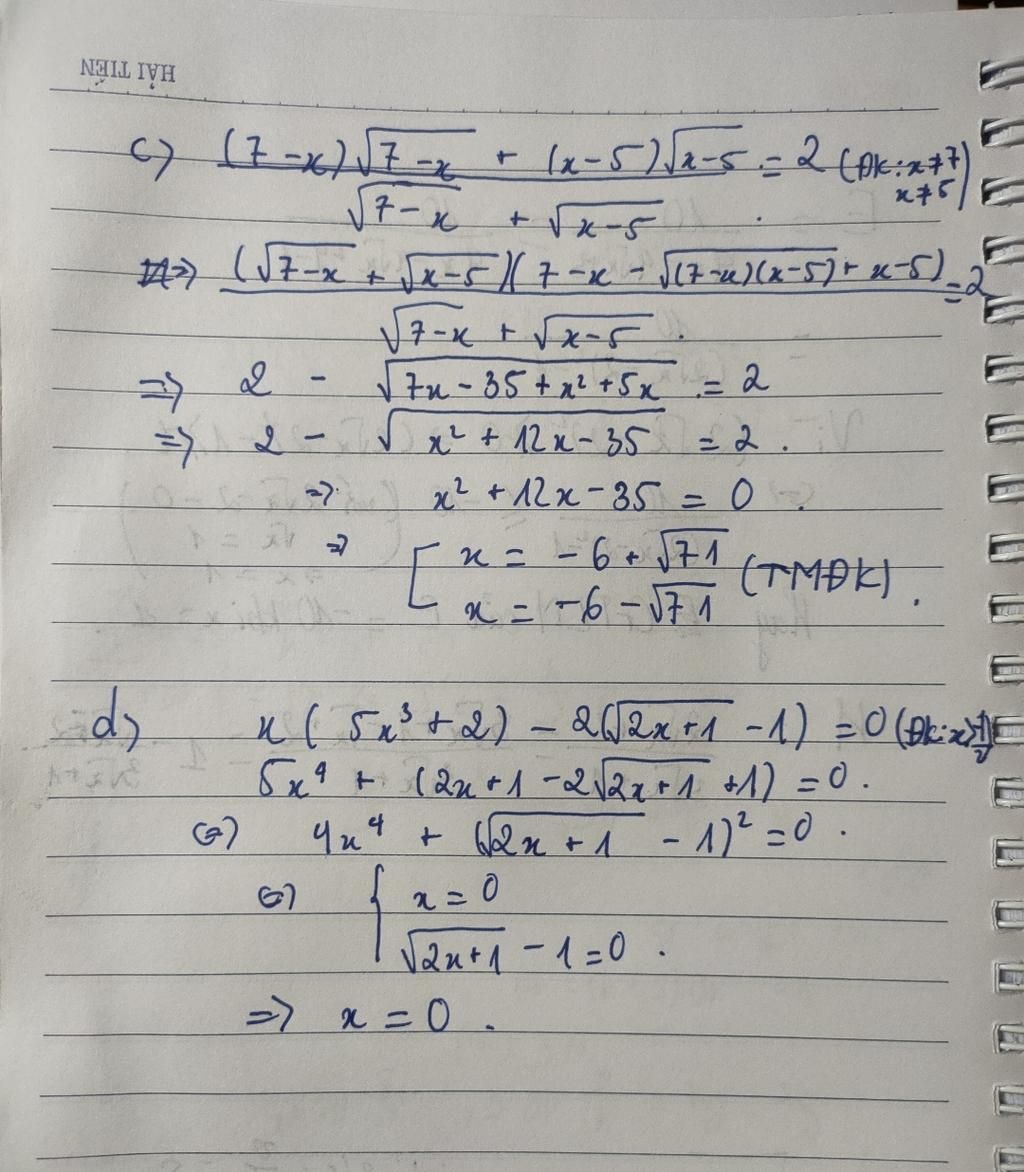 HẢI TIẾN
c) ((7-x)√(7-x) + (x-5)√(x-5))/(√(7-x) + √(x-5)) = 2 (ĐK: x≠7 x≠5)
=> ((√(7-x) + √(x-5))(7-x - √((7-x)(x-5)) + x-5))/(√(7-x) + √(x-5)) = 2
=> 2 - √(7x - 35 + x² + 5x) = 2
=> 2 - √(x² + 12x - 35) = 2.
=> x² + 12x - 35 = 0
=> [ x = -6 + √71
x = -6 - √71 (TMĐK).
d) x(5x³ + 2) - 2(√(2x+1) - 1) = 0 (ĐK: x>
5x⁴ + (2x+1 - 2√(2x+1) + 1) = 0.
<=> 4x⁴ + (√(2x+1) - 1)² = 0.
<=> { x = 0
√(2x+1) - 1 = 0.
=> x = 0.